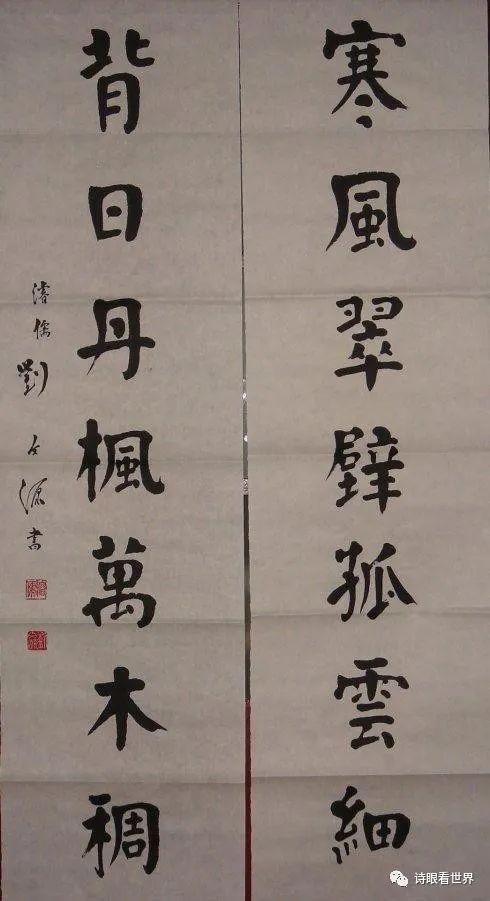 寒風翠壁孤雲細
背日丹楓萬木稠
儒劉源書
诗眼看世界